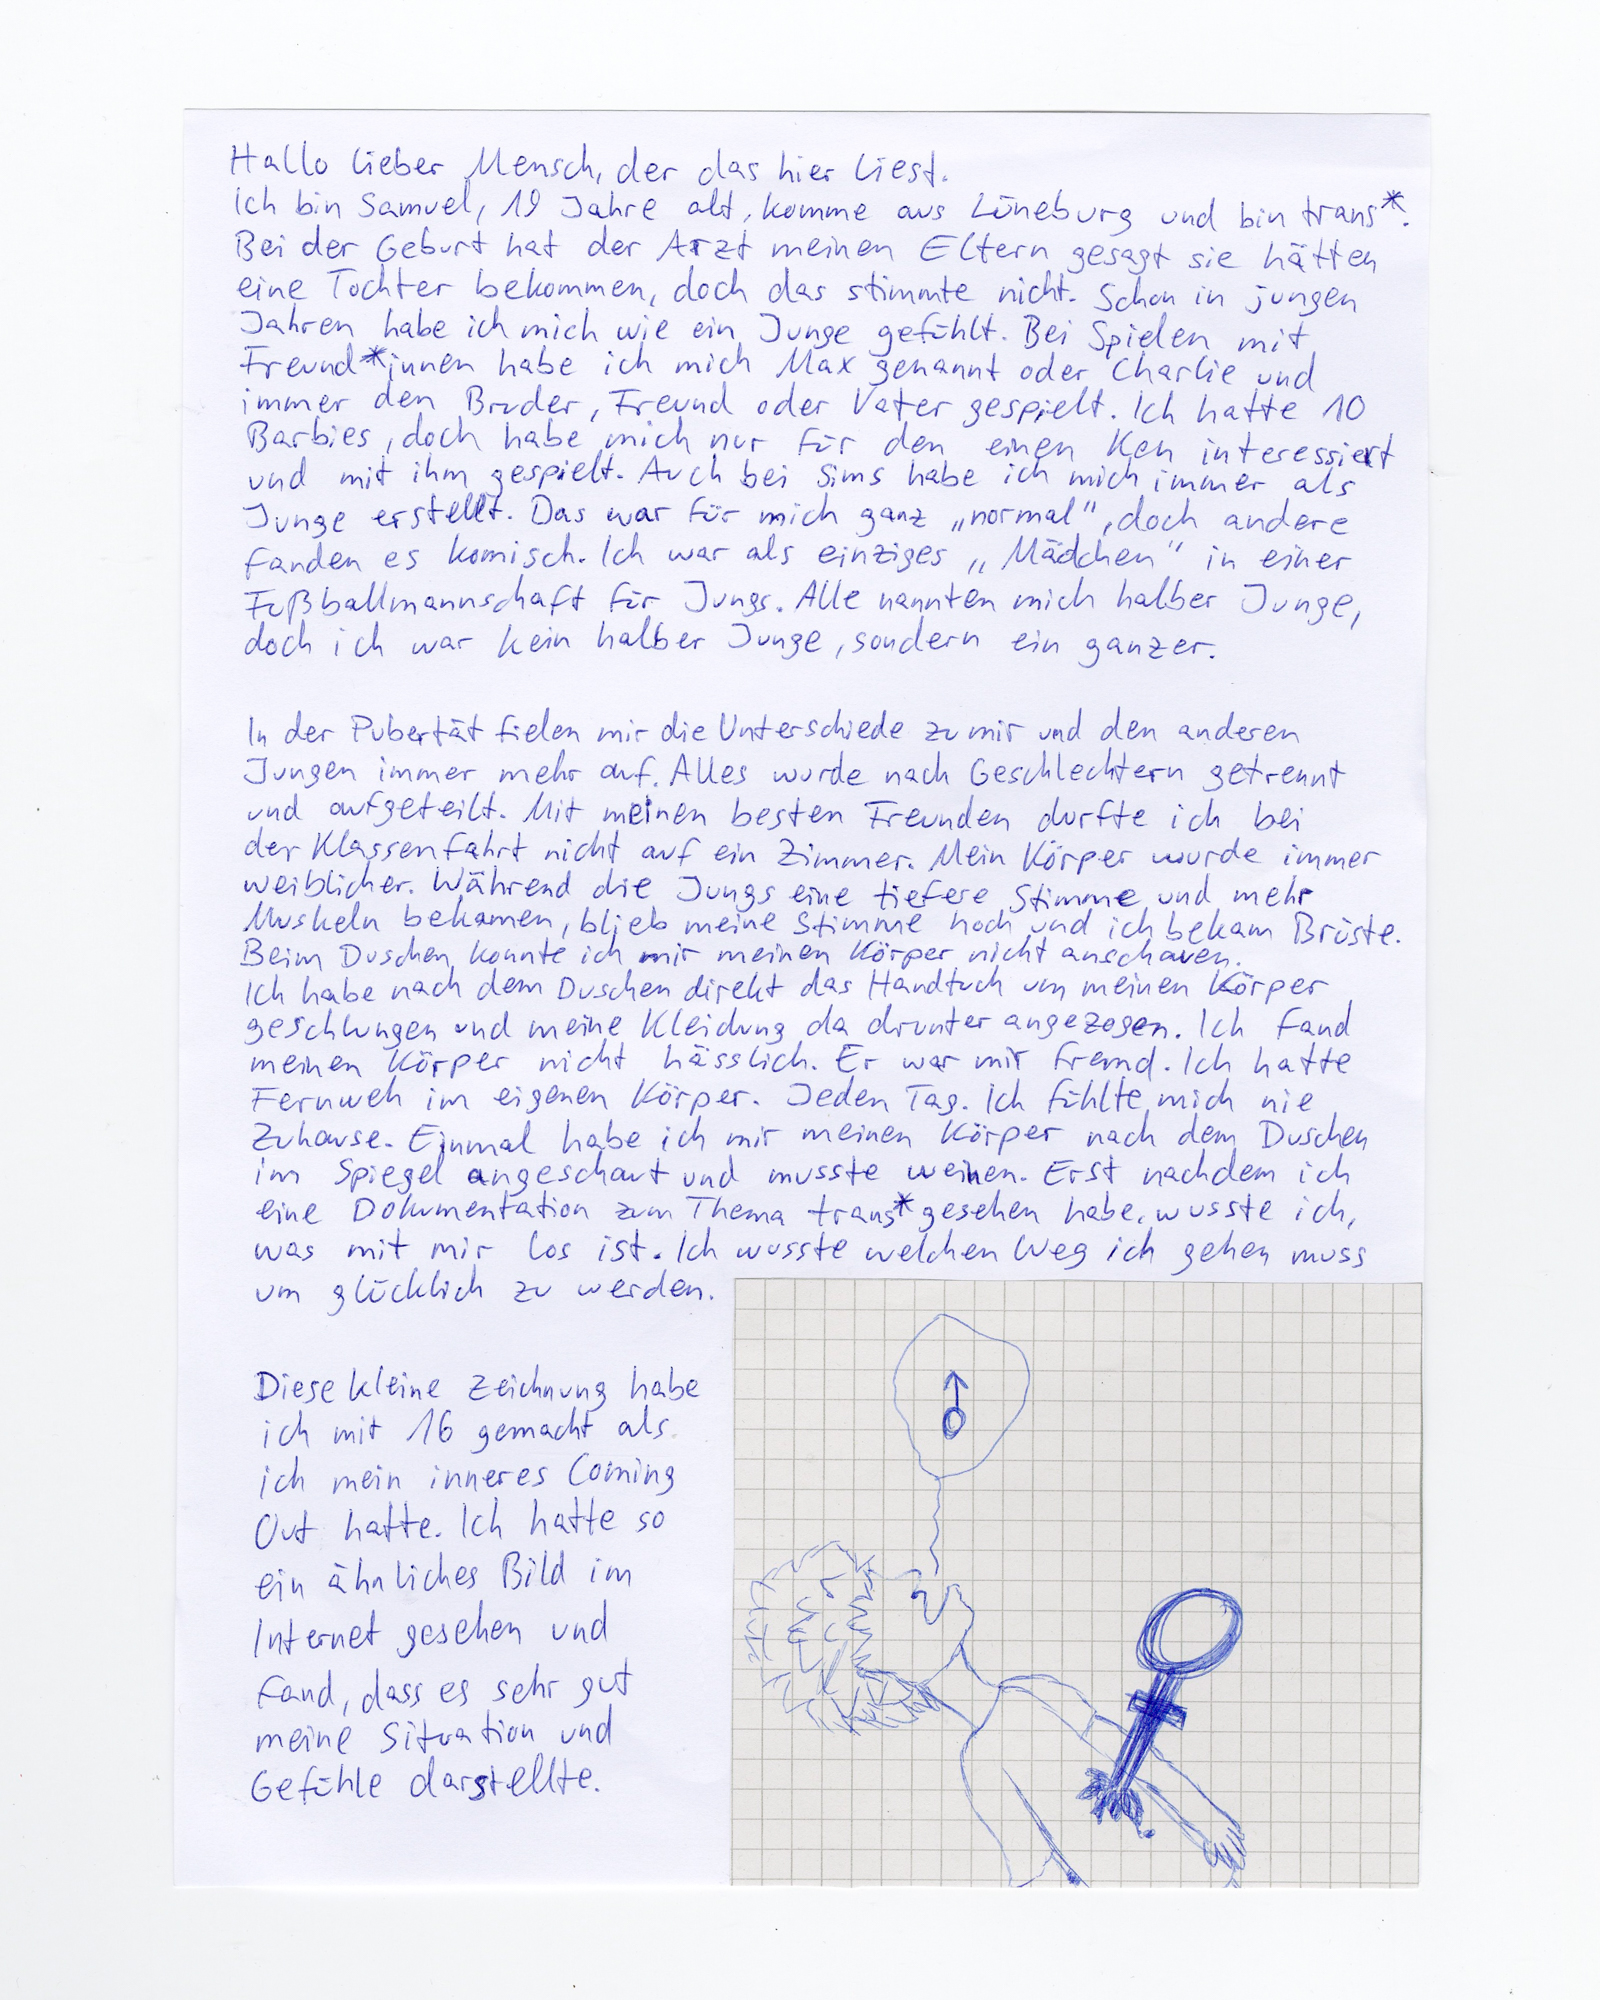 Hallo lieber Mensch, der das hier liest.
Ich bin Samuel, 19 Jahre alt, komme aus Lüneburg und bin trans*.
Bei der Geburt hat der Arzt meinen Eltern gesagt sie hätten
eine Tochter bekommen, doch das stimmte nicht. Schon in jungen
Jahren habe ich mich wie ein Junge gefühlt. Bei Spielen mit
Freund*innen habe ich mich Max genannt oder Charlie und
immer den Bruder, Freund oder Vater gespielt. Ich hatte 10
Barbies, doch habe mich nur für den einen Ken interessiert
und mit ihm gespielt. Auch bei Sims habe ich mich immer als
Junge erstellt. Das war für mich ganz „normal“, doch andere
fanden es komisch. Ich war als einziges „Mädchen“ in einer
Fußballmannschaft für Jungs. Alle nannten mich halber Junge,
doch ich war kein halber Junge, sondern ein ganzer.
In der Pubertät fielen mir die Unterschiede zu mir und den anderen
Jungen immer mehr auf. Alles wurde nach Geschlechtern getrennt
und aufgeteilt. Mit meinen besten Freunden durfte ich bei
der Klassenfahrt nicht auf ein Zimmer. Mein Körper wurde immer
weiblicher. Während die Jungs eine tiefere Stimme und mehr
Muskeln bekamen, blieb meine Stimme hoch und ich bekam Brüste.
Beim Duschen konnte ich mir meinen Körper nicht anschauen.
Ich habe nach dem Duschen direkt das Handtuch um meinen Körper
geschlungen und meine Kleidung da drunter angezogen. Ich fand
meinen Körper nicht hässlich. Er war mir fremd. Ich hatte
Fernweh im eigenen Körper. Jeden Tag. Ich fühlte mich nie
Zuhause. Einmal habe ich mir meinen Körper nach dem Duschen
im Spiegel angeschaut und musste weinen. Erst nachdem ich
eine Dokumentation zum Thema trans* gesehen habe, wusste ich,
was mit mir los ist. Ich wusste welchen Weg ich gehen muss
um glücklich zu werden.
Diese kleine Zeichnung habe
ich mit 16 gemacht als
ich mein inneres Coming
Out hatte. Ich hatte so
ein ähnliches Bild im
Internet gesehen und
fand, dass es sehr gut
meine Situation und
Gefühle darstellte.